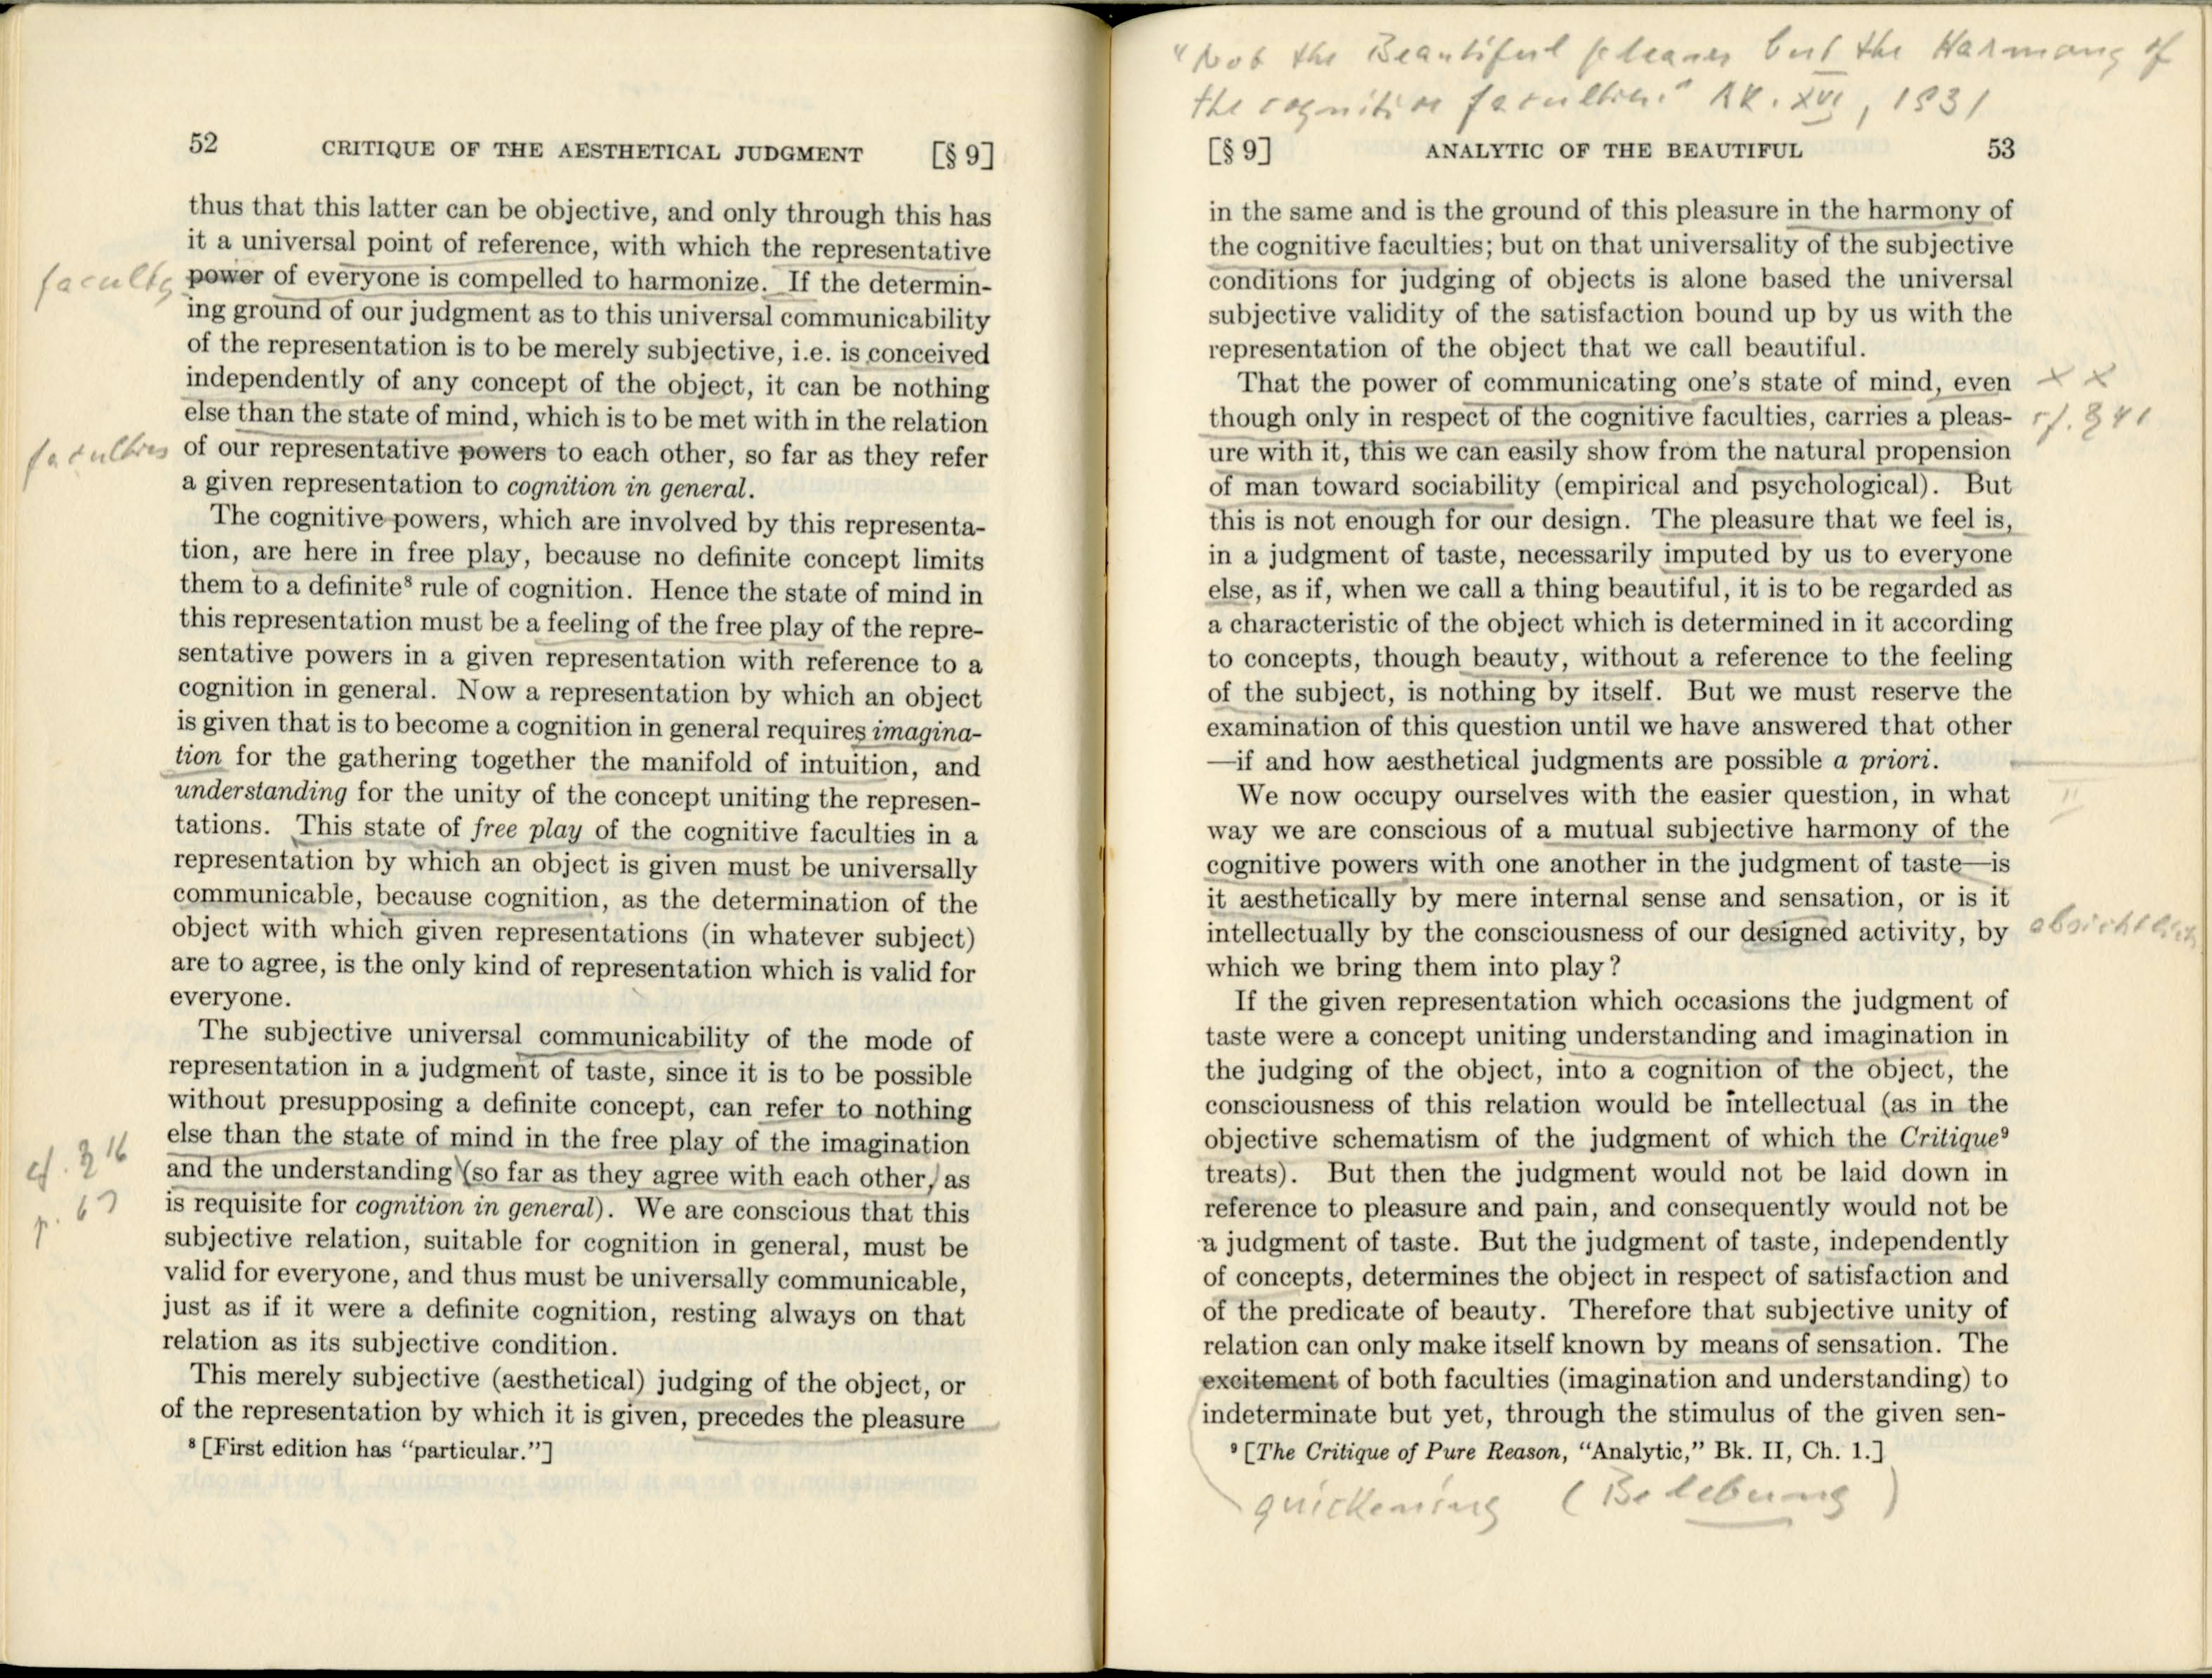 52 CRITIQUE OF THE AESTHETICAL JUDGMENT [§ 9]
thus that this latter can be objective, and only through this has
it a universal point of reference, with which the representative
faculty power of everyone is compelled to harmonize. If the determin-
ing ground of our judgment as to this universal communicability
of the representation is to be merely subjective, i.e. is conceived
independently of any concept of the object, it can be nothing
else than the state of mind, which is to be met with in the relation
faculties of our representative powers to each other, so far as they refer
a given representation to cognition in general.
The cognitive powers, which are involved by this representa-
tion, are here in free play, because no definite concept limits
them to a definite⁸ rule of cognition. Hence the state of mind in
this representation must be a feeling of the free play of the repre-
sentative powers in a given representation with reference to a
cognition in general. Now a representation by which an object
is given that is to become a cognition in general requires imagina-
tion for the gathering together the manifold of intuition, and
understanding for the unity of the concept uniting the represen-
tations. This state of free play of the cognitive faculties in a
representation by which an object is given must be universally
communicable, because cognition, as the determination of the
object with which given representations (in whatever subject)
are to agree, is the only kind of representation which is valid for
everyone.
The subjective universal communicability of the mode of
representation in a judgment of taste, since it is to be possible
without presupposing a definite concept, can refer to nothing
else than the state of mind in the free play of the imagination
cf. § 16 and the understanding (so far as they agree with each other, as
p. 67 is requisite for cognition in general). We are conscious that this
subjective relation, suitable for cognition in general, must be
valid for everyone, and thus must be universally communicable,
just as if it were a definite cognition, resting always on that
relation as its subjective condition.
This merely subjective (aesthetical) judging of the object, or
of the representation by which it is given, precedes the pleasure
⁸ [First edition has "particular."]
"Not the Beautiful pleases but the Harmony of
the cognitive faculties." AK. XVI, 1931
[§ 9] ANALYTIC OF THE BEAUTIFUL 53
in the same and is the ground of this pleasure in the harmony of
the cognitive faculties; but on that universality of the subjective
conditions for judging of objects is alone based the universal
subjective validity of the satisfaction bound up by us with the
representation of the object that we call beautiful.
That the power of communicating one's state of mind, even x x
though only in respect of the cognitive faculties, carries a pleas- cf. § 41
ure with it, this we can easily show from the natural propension
of man toward sociability (empirical and psychological). But
this is not enough for our design. The pleasure that we feel is,
in a judgment of taste, necessarily imputed by us to everyone
else, as if, when we call a thing beautiful, it is to be regarded as
a characteristic of the object which is determined in it according
to concepts, though beauty, without a reference to the feeling
of the subject, is nothing by itself. But we must reserve the
examination of this question until we have answered that other
—if and how aesthetical judgments are possible a priori.
We now occupy ourselves with the easier question, in what II
way we are conscious of a mutual subjective harmony of the
cognitive powers with one another in the judgment of taste—is
it aesthetically by mere internal sense and sensation, or is it
intellectually by the consciousness of our designed activity, by absichtlich
which we bring them into play?
If the given representation which occasions the judgment of
taste were a concept uniting understanding and imagination in
the judging of the object, into a cognition of the object, the
consciousness of this relation would be intellectual (as in the
objective schematism of the judgment of which the Critique⁹
treats). But then the judgment would not be laid down in
reference to pleasure and pain, and consequently would not be
a judgment of taste. But the judgment of taste, independently
of concepts, determines the object in respect of satisfaction and
of the predicate of beauty. Therefore that subjective unity of
relation can only make itself known by means of sensation. The
excitement of both faculties (imagination and understanding) to
indeterminate but yet, through the stimulus of the given sen-
⁹ [The Critique of Pure Reason, "Analytic," Bk. II, Ch. 1.]
quickening (Belebung)